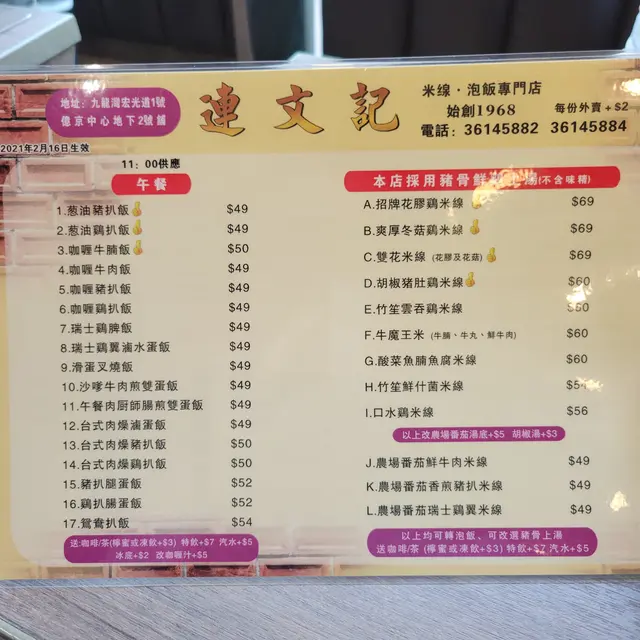 地址：九龍灣宏光道1號
億京中心地下2號舖
連文記
米線·泡飯專門店
始創1968
每份外賣+$2
電話：36145882 36145884
2021年2月16日生效
11：00供應
午餐
1.葱油豬扒飯 $49
2.葱油鷄扒飯 $49
3.咖喱牛腩飯 $50
4.咖喱牛肉飯 $49
5.咖喱豬扒飯 $49
6.咖喱鷄扒飯 $49
7.瑞士鷄脾飯 $49
8.瑞士鷄翼滷水蛋飯 $49
9.滑蛋叉燒飯 $49
10.沙嗲牛肉煎雙蛋飯 $49
11.午餐肉厨師腸煎雙蛋飯 $49
12.台式肉燥滷蛋飯 $49
13.台式肉燥豬扒飯 $50
14.台式肉燥鷄扒飯 $50
15.豬扒腿蛋飯 $52
16.鷄扒腸蛋飯 $52
17.鴛鴦扒飯 $54
送:咖啡/茶(檸蜜或凍飲+$3) 特飲+$7 汽水+$5
冰底+$2 改咖喱汁+$5
本店採用豬骨鮮 湯(不含味精)
A.招牌花膠鷄米線 $69
B.爽厚冬菇鷄米線 $69
C.雙花米線 (花膠及花菇) $69
D.胡椒豬肚鷄米線 $60
E.竹笙雲吞鷄米線
F.牛魔王米 (牛腩、牛丸、鮮牛肉) $60
G.酸菜魚腩魚腐米線 $60
H.竹笙鮮什菌米線
I.口水鷄米線 $56
以上改農場番茄湯底+$5 胡椒湯+$3
J.農場番茄鮮牛肉米線 $49
K.農場番茄香煎豬扒米線 $49
L.農場番茄瑞士鷄翼米線 $49
以上均可轉泡飯、可改選豬骨上湯
送咖啡/茶 (檸蜜或凍飲+$3) 特飲+$7 汽水+$5